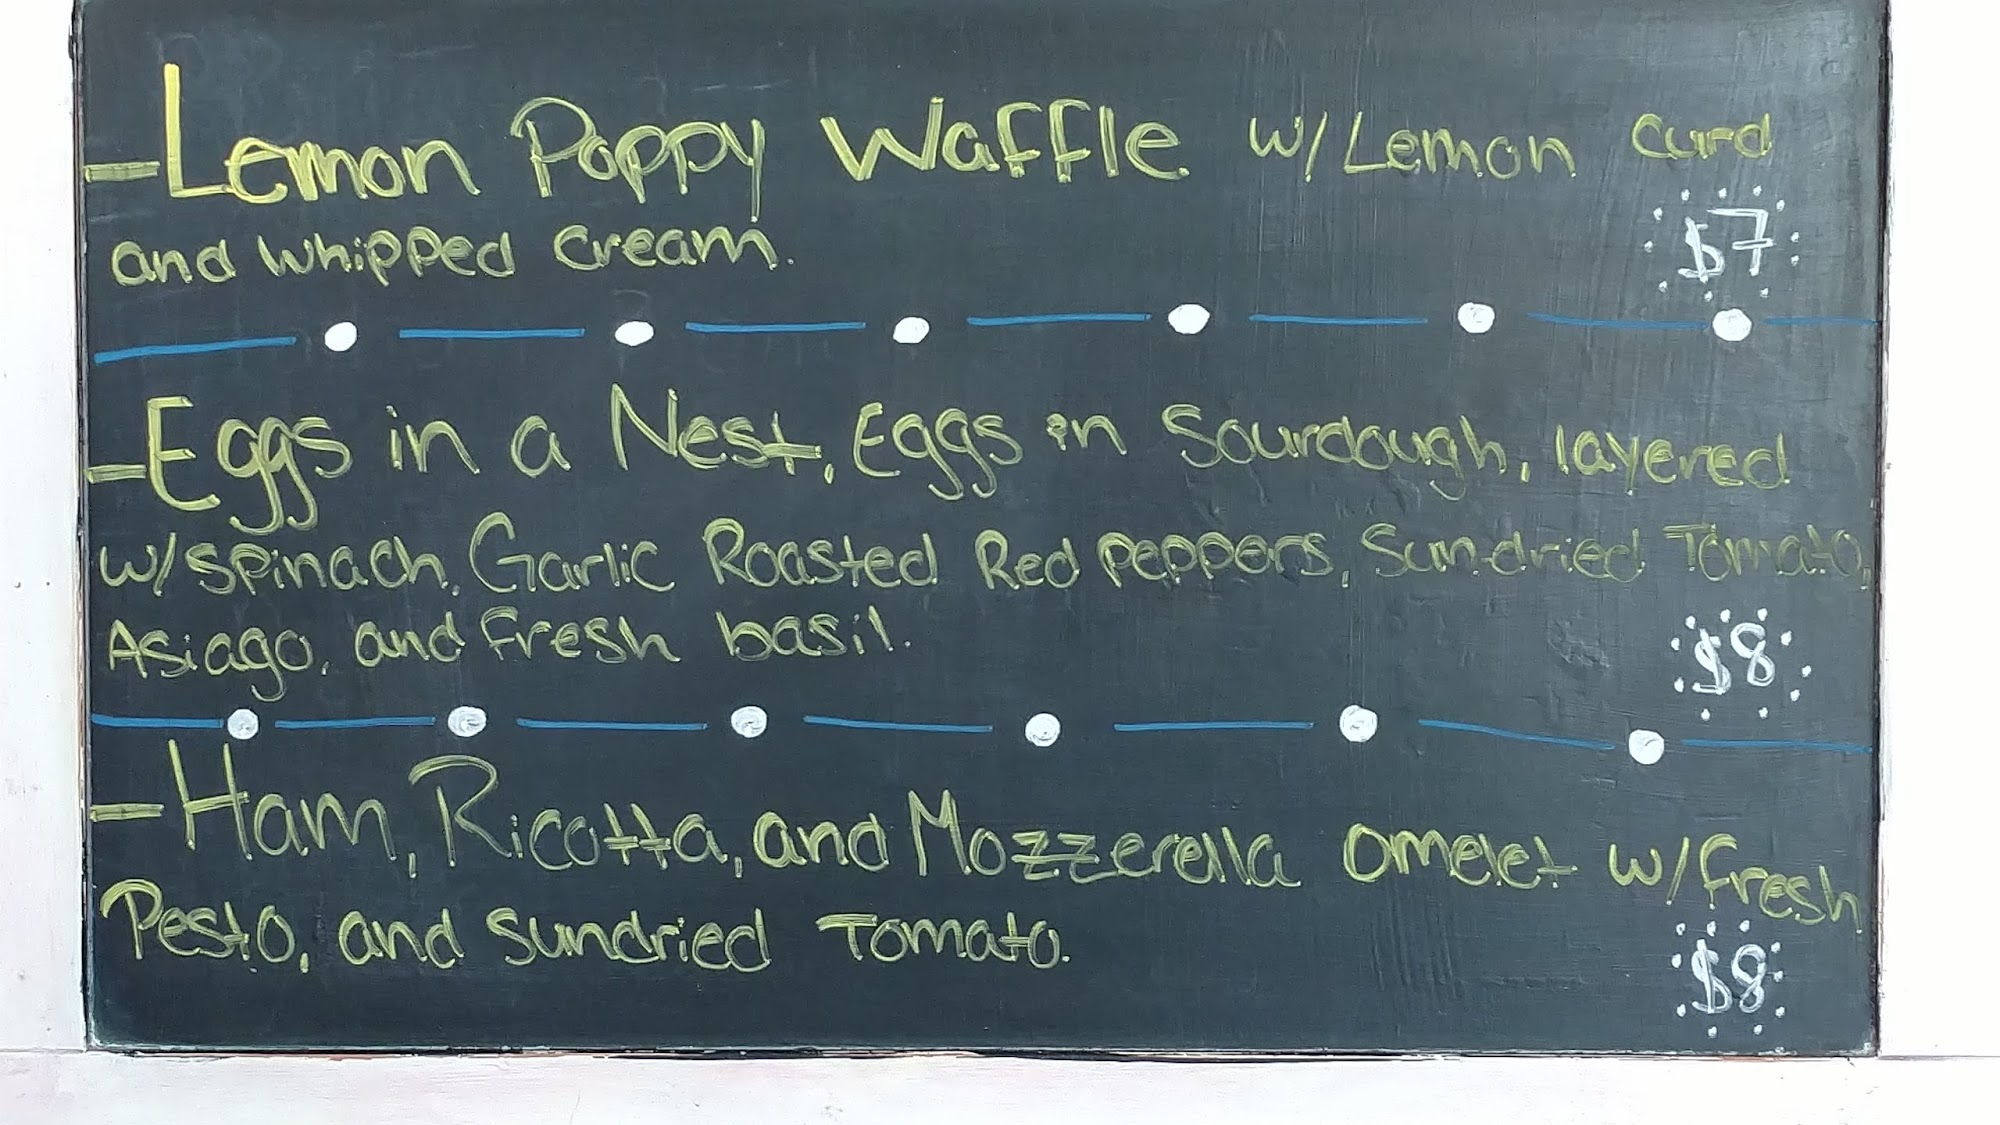 -Lemon Poppy Waffle w/Lemon Curd
and whipped cream.
$7
-Eggs in a Nest, Eggs in Sourdough, layered
w/spinach, Garlic Roasted Red peppers, Sun-dried Tomato,
Asiago, and fresh basil.
$8
-Ham, Ricotta, and Mozzerella omelet w/fresh
Pesto, and sundried Tomato.
$8